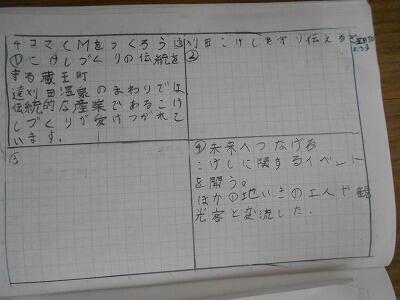 4コマCMをつくろう 遠刈田こけしを守り伝える
①こけしづくりの伝統を
守る蔵王町
遠刈田温泉のまわりでは
伝統的な産業であるこけ
しづくりが受けつがれて
います。
②
③
④未来へつなげる
こけしに関するイベント
を開う。
ほかの地いきの工人や観
光客と交流した.